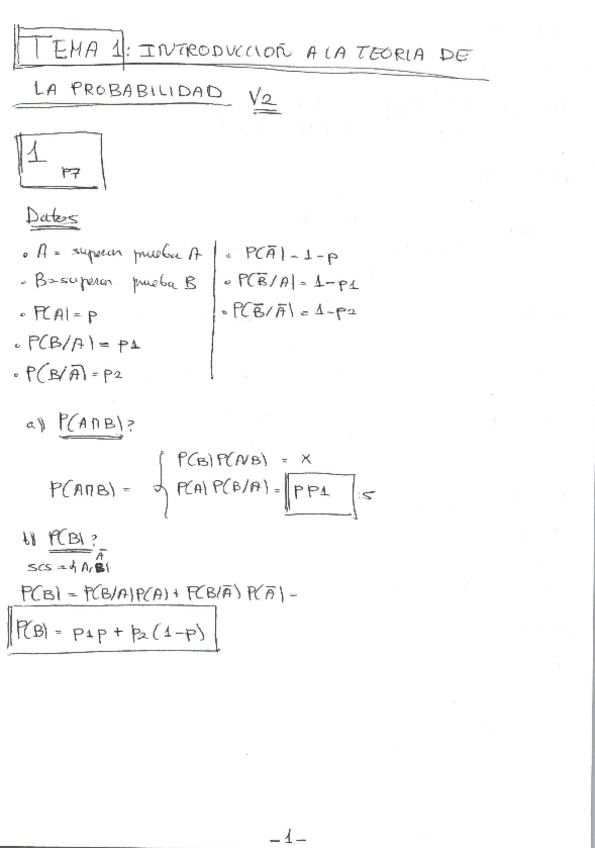 TEMA 1: INTRODUCCION A LA TEORIA DE
LA PROBABILIDAD V2
1 P7
Datos
• A = superan prueba A
• B = superan prueba B
• P(A) = p
• P(B/A) = p1
• P(B/Ā) = p2
• P(Ā) = 1-p
• P(B̄/A) = 1-p1
• P(B̄/Ā) = 1-p2
a) P(A∩B)?
P(A∩B) = {
P(B)P(A/B) = x
P(A)P(B/A) = PP1
b) P(B)?
Ā
SCS = {A,
P(B) = P(B/A)P(A) + P(B/Ā) P(Ā) =
P(B) = p1p + p2(1-p)
-1-